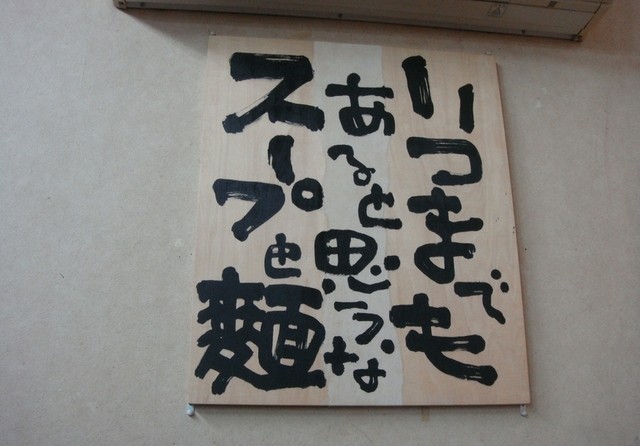 いつまでも
あると思うな
スープと麺